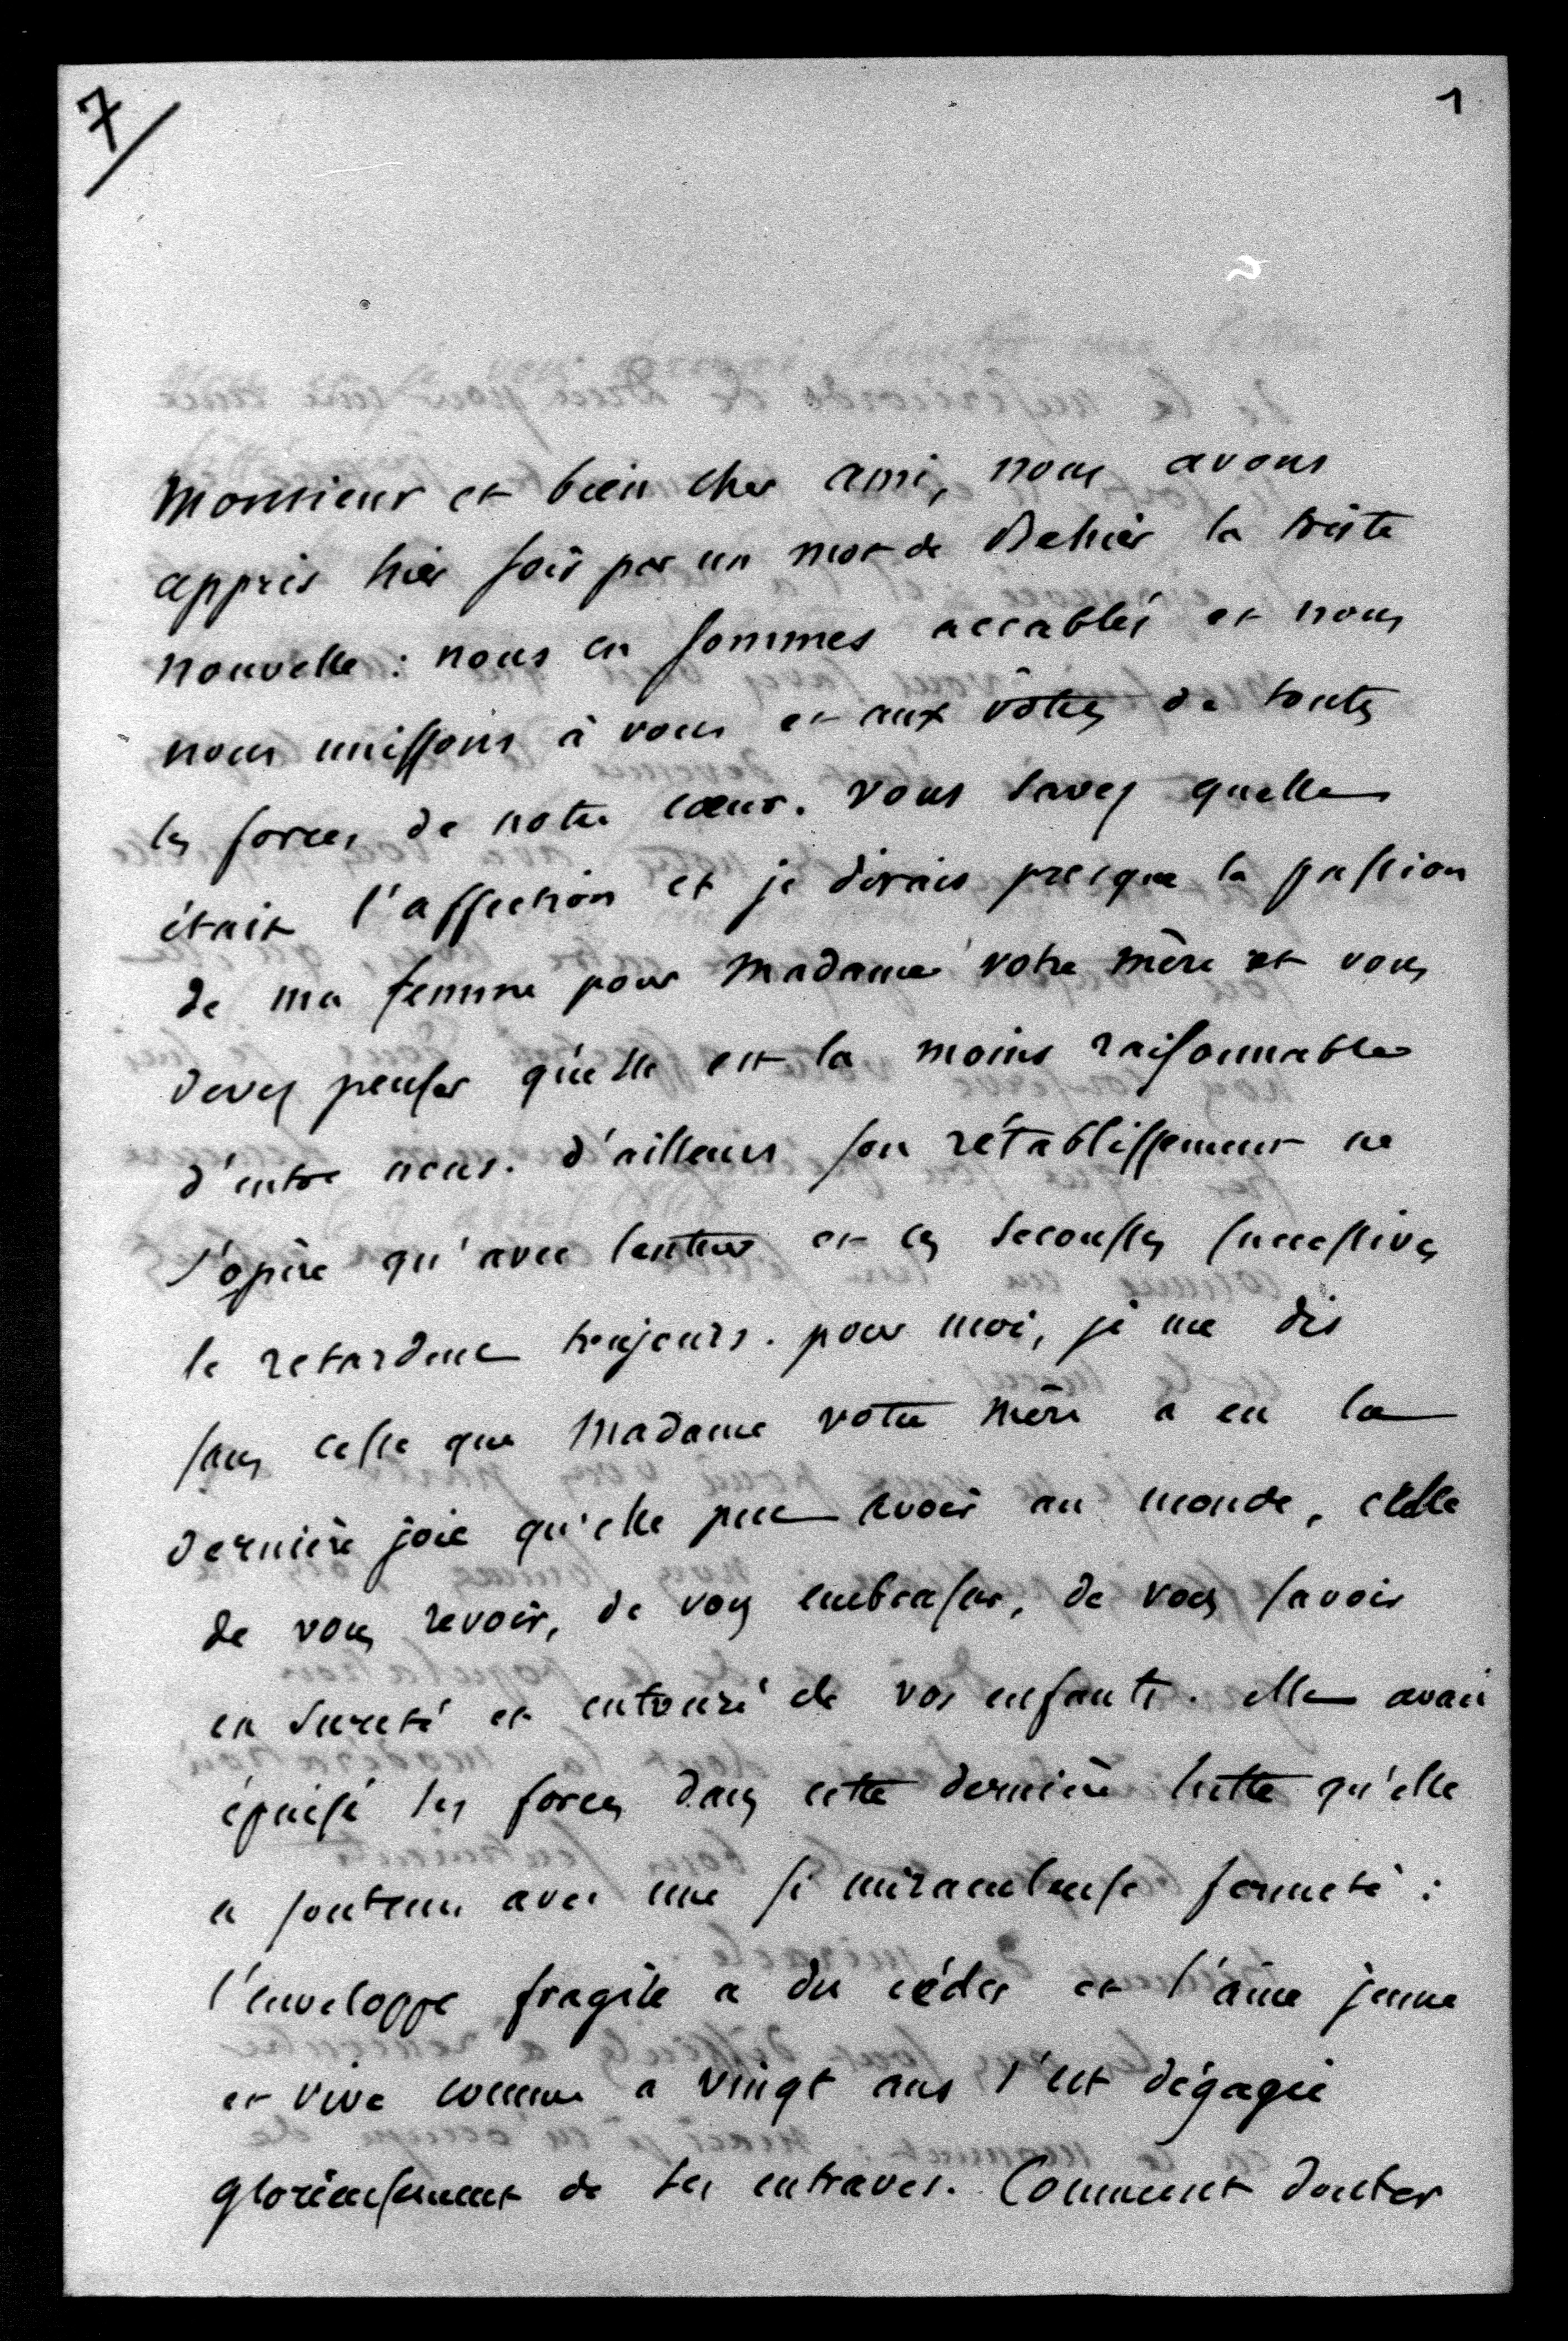 7
1
Monsieur et bien cher ami, nous avons
appris hier soir par un mot de Behier la triste
nouvelle : nous en sommes accablés et nous
nous unissons à vous et aux vôtres de toutes
les forces de notre cœur. vous savez quelle
était l'affection et je dirais presque la passion
de ma femme pour Madame votre mère et vous
devez penser qu'elle est la moins raisonnable
d'entre nous. d'ailleurs son rétablissement ne
s'opère qu'avec lenteur et ces secousses successives
le retardent toujours. pour moi, je me dis
sans cesse que Madame votre mère a eu la
dernière joie qu'elle put avoir au monde, celle
de vous revoir, de vous embrasser, de vous savoir
en sureté et entouré de vos enfants. elle avait
épuisé ses forces dans cette dernière lutte qu'elle
a soutenu avec une si miraculeuse fermeté :
l'enveloppe fragile a du céder et l'âme jeune
et vive comme a vingt ans s'est dégagée
glorieusement de ses entraves. Comment douter